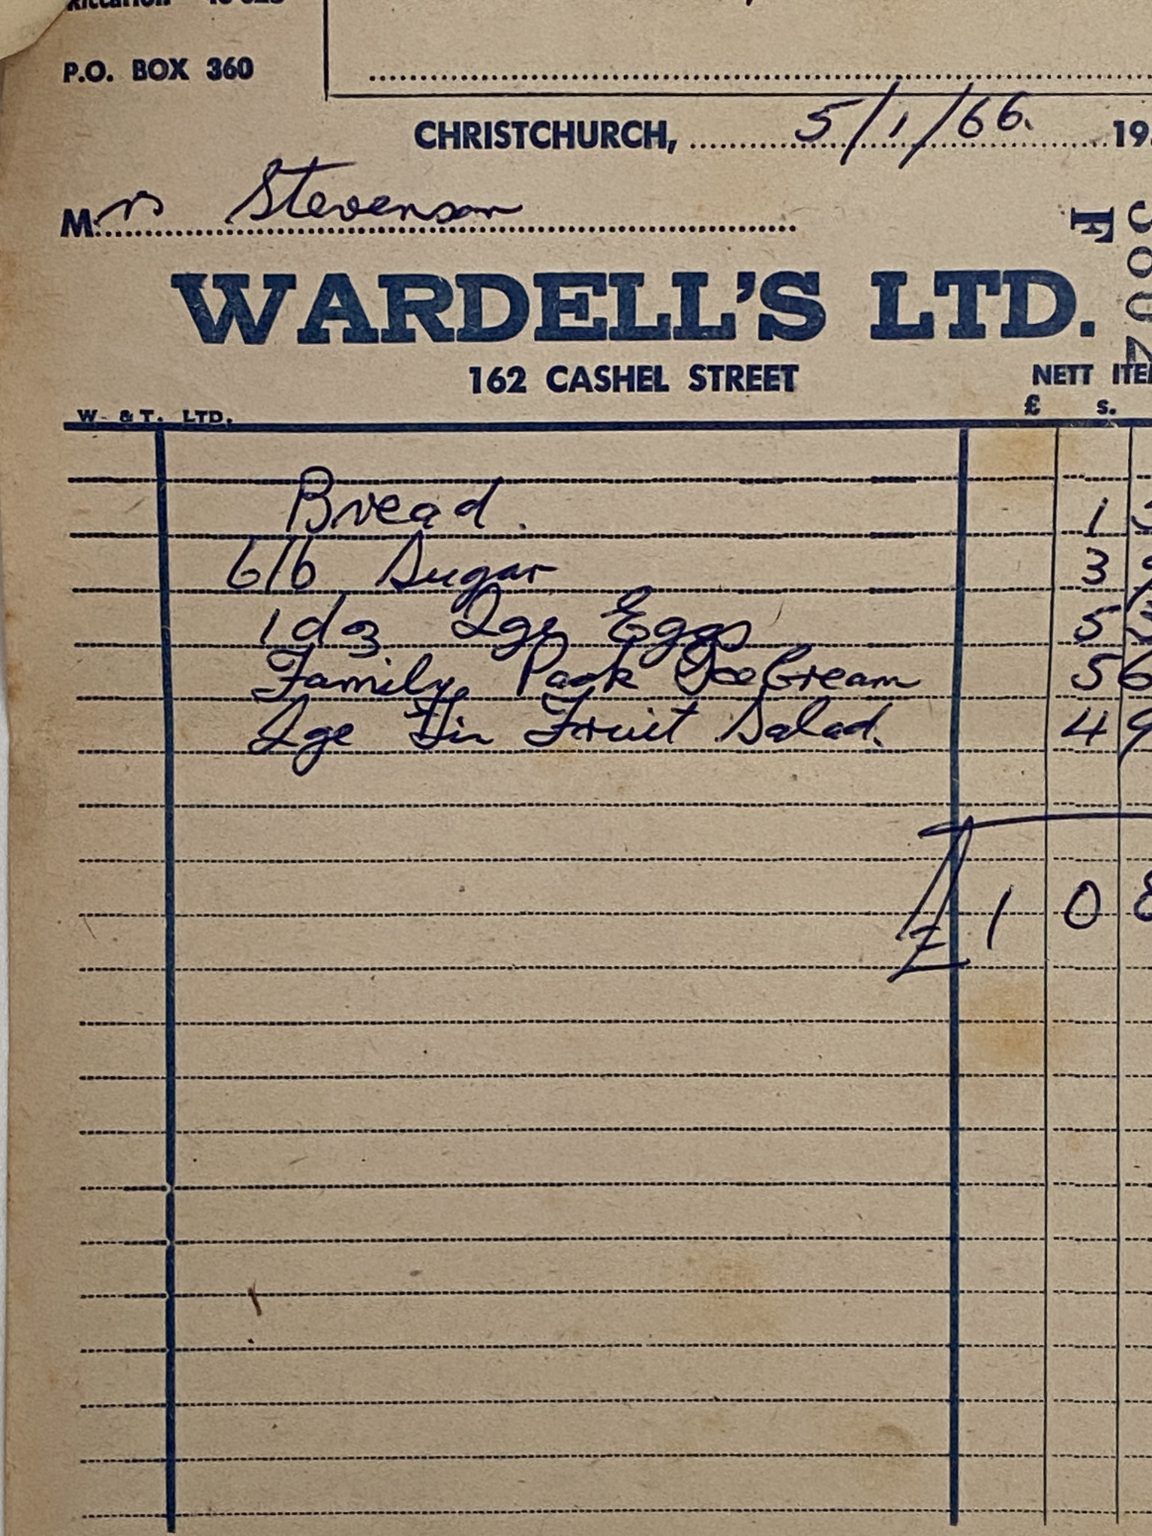 P.O. BOX 360
CHRISTCHURCH, 5/1/66. 19
Mrs Stevenson
WARDELL'S LTD.
162 CASHEL STREET
NETT ITE
£ s.
W. & T. LTD.
Bread. 1
6lb Sugar 3 9
1 dz Lge Eggs 5 3
Family Pack Ice Cream 5 6
Lge Tin Fruit Salad. 4 9
£ 1 0 8